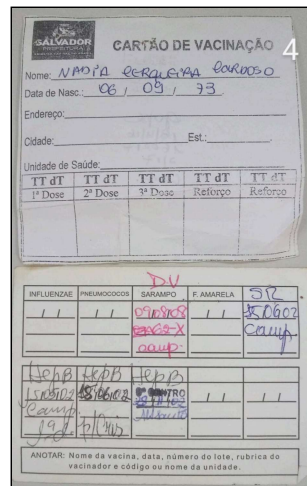 SALVADOR
PREFEITURA
CARTÃO DE VACINAÇÃO 4
Nome: NADIA CERQUEIRA CARDOSO
Data de Nasc.: 06 / 09 / 73
Endereço:
Cidade: Est.:
Unidade de Saúde:
TT dT TT dT TT dT TT dT TT dT
1ª Dose 2ª Dose 3ª Dose Reforço Reforço
DV
INFLUENZAE PNEUMOCOCOS SARAMPO F. AMARELA SR
/ / / / 09/08/08 / / 150602
camp Camp
HepB HepB HepB
Camp
ANOTAR: Nome da vacina, data, número do lote, rubrica do
vacinador e código ou nome da unidade.